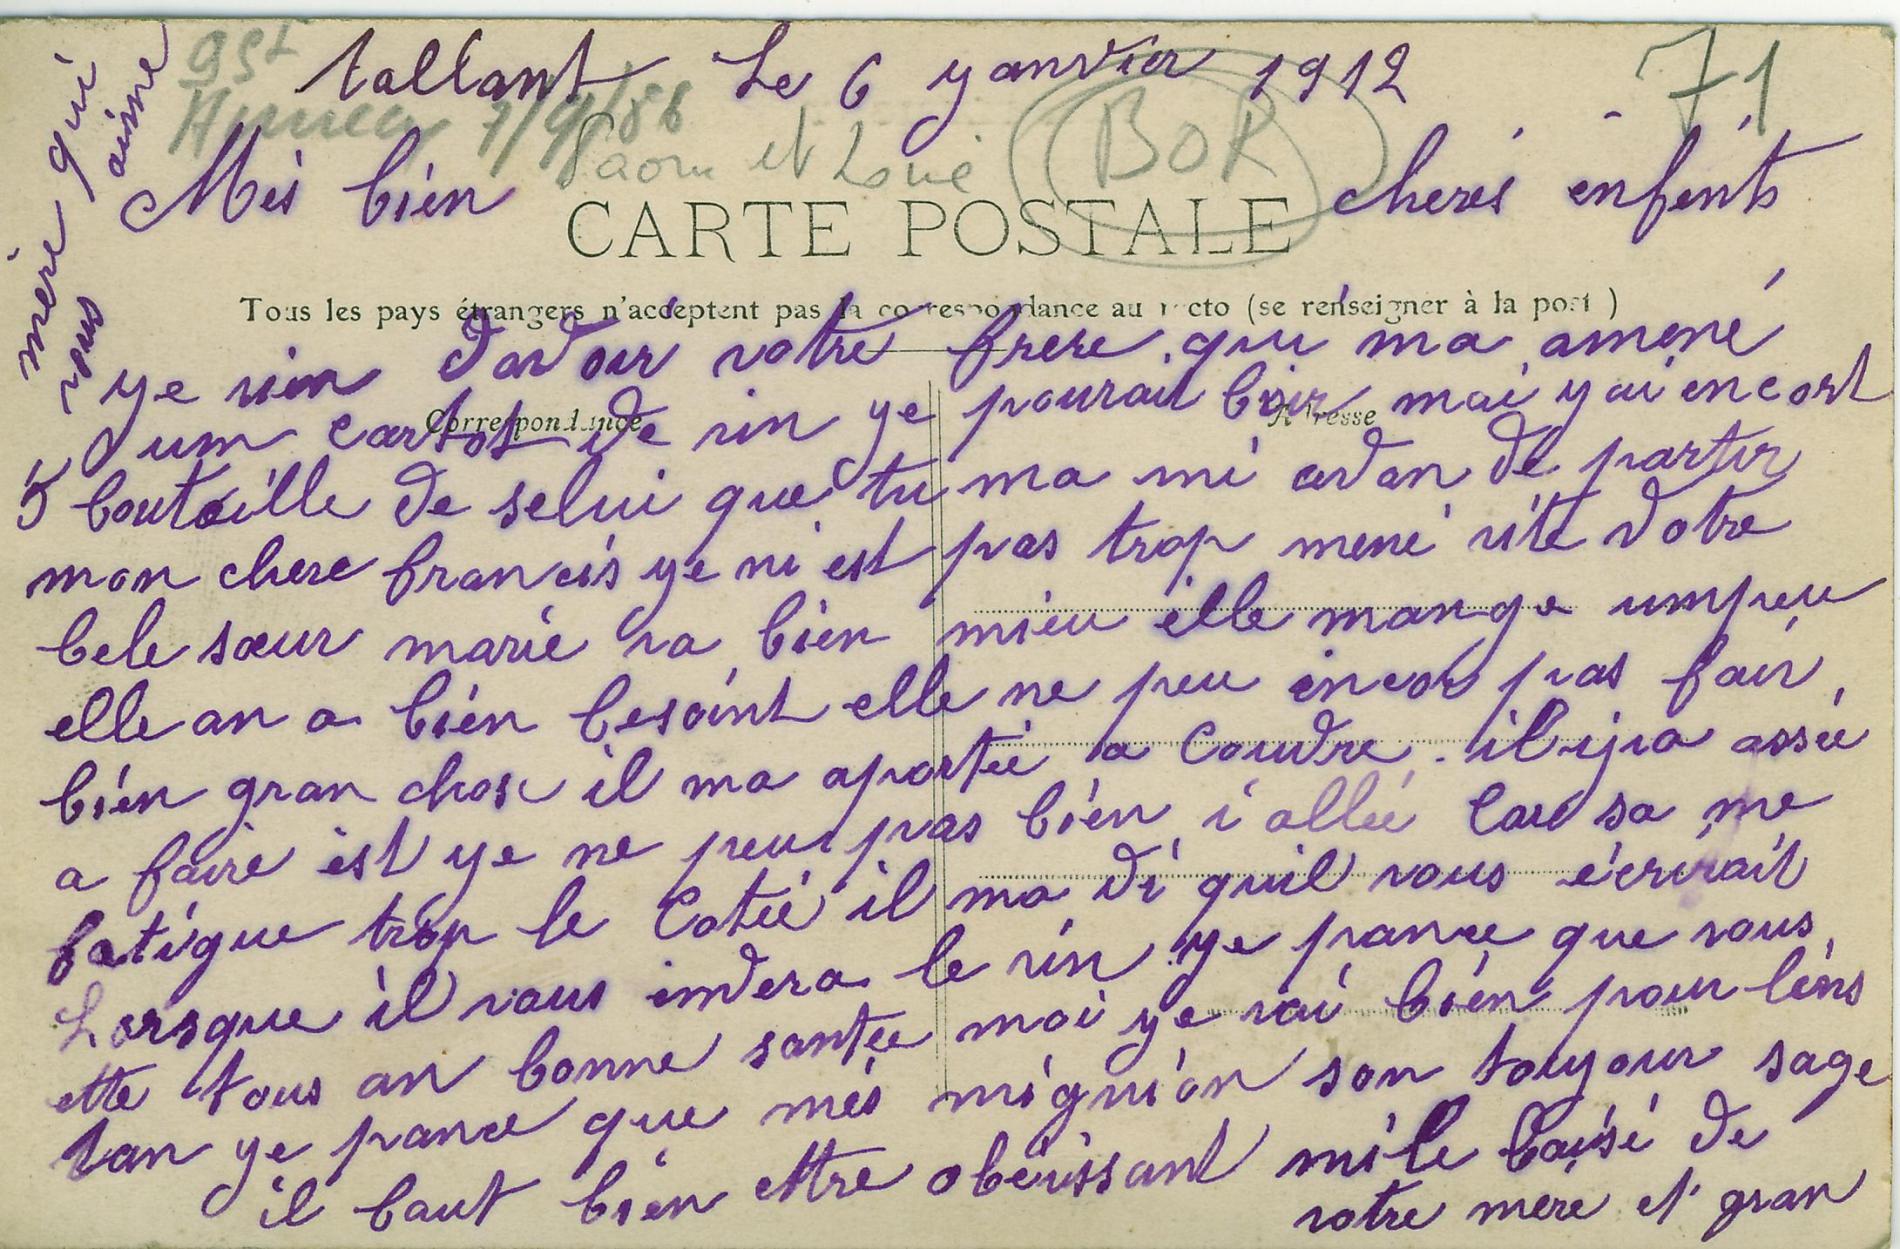 tallant Le 6 yanvier 1912
71
BOR
Saone et Loire
Més bien cherés enfents
CARTE POSTALE
Tous les pays étrangers n'acceptent pas la correspondance au recto (se renseigner à la post )
Correspondance
Adresse
ye vien davoir votre frere qui ma amené
um cartot de vin ye pourait boir mai yai encort
5 bouteille de selui que tu ma mi avan de partir
mon chere francis ye ni est pas trop mené vite votre
bele sœur marie va bien mieu elle mange umpeu
elle an a bien besoint elle ne peu encor pas fair
bien gran chose il ma aportée a coudre . il y a assée
a faire est ye ne peu pas bien i allée Car sa me
fatigue trop le Cotée il ma di quil vous écrirait
Lorsque il vous enverra le vin ye pance que vous
ette tous an bonne santée moi ye vai bien pour léns
tan ye pance que més mignion son touyour sage
il faut bien ettre obeissant mile baisé de
votre mere et gran
mère qui
vous aime